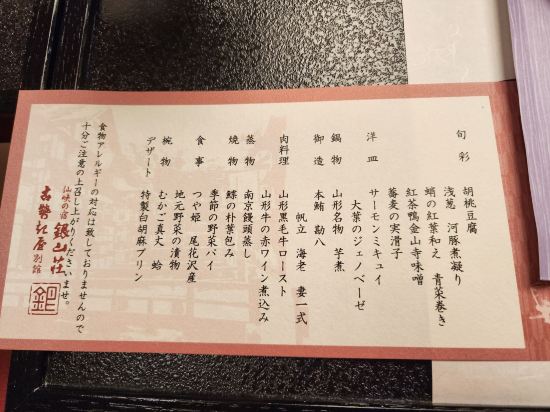 旬彩
胡桃豆腐
浅葱 河豚煮凝り
蛸の紅葉和え 青菜巻き
紅茶鴨金山寺味噌
蕎麦の実滑子
洋皿
サーモンミキュイ
大葉のジェノベーゼ
鍋物
山形名物 芋煮
御造
本鮪 勘八
帆立 海老 妻一式
肉料理
山形黒毛牛ロースト
山形牛の赤ワイン煮込み
蒸物
南京饅頭蒸し
焼物
鰈の朴葉包み
季節の野菜パイ
食事
つや姫 尾花沢産
地元野菜の漬物
椀物
むかご真丈 蛤
デザート
特製白胡麻プリン
食物アレルギーの対応は致しておりませんので
十分ご注意の上召し上がりくださいませ。
仙峡の宿 銀山荘
古勢起屋 別館